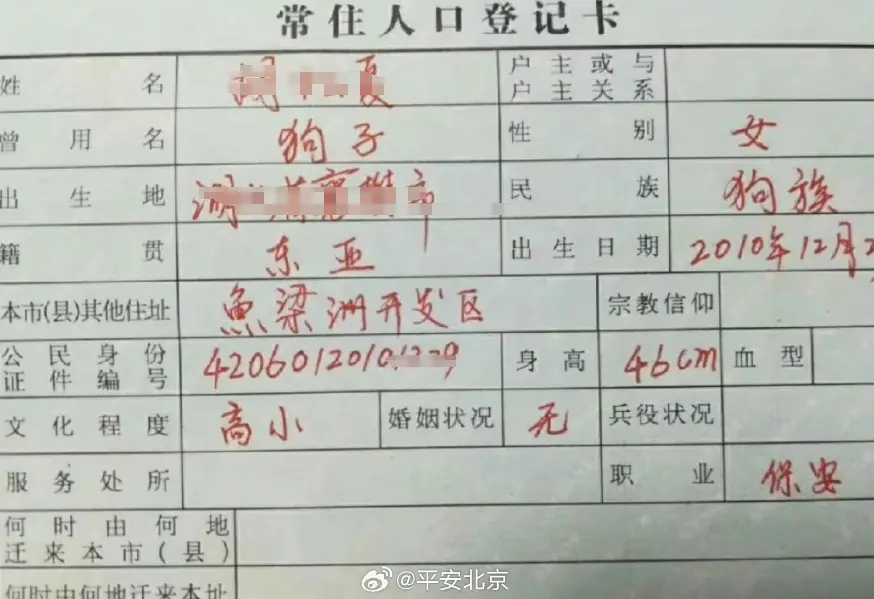 常住人口登记卡
姓名 夏 户主或与户主关系
曾用名 狗子 性别 女
出生地 市 民族 狗族
籍贯 东亚 出生日期 2010年12月2
本市(县)其他住址 魚梁洲开发区 宗教信仰
公民身份证件编号 420601201012 9 身高 46cm 血型
文化程度 高小 婚姻状况 无 兵役状况
服务处所 职业 保安
何时由何地迁来本市(县)
何时由何地迁来本址
@平安北京